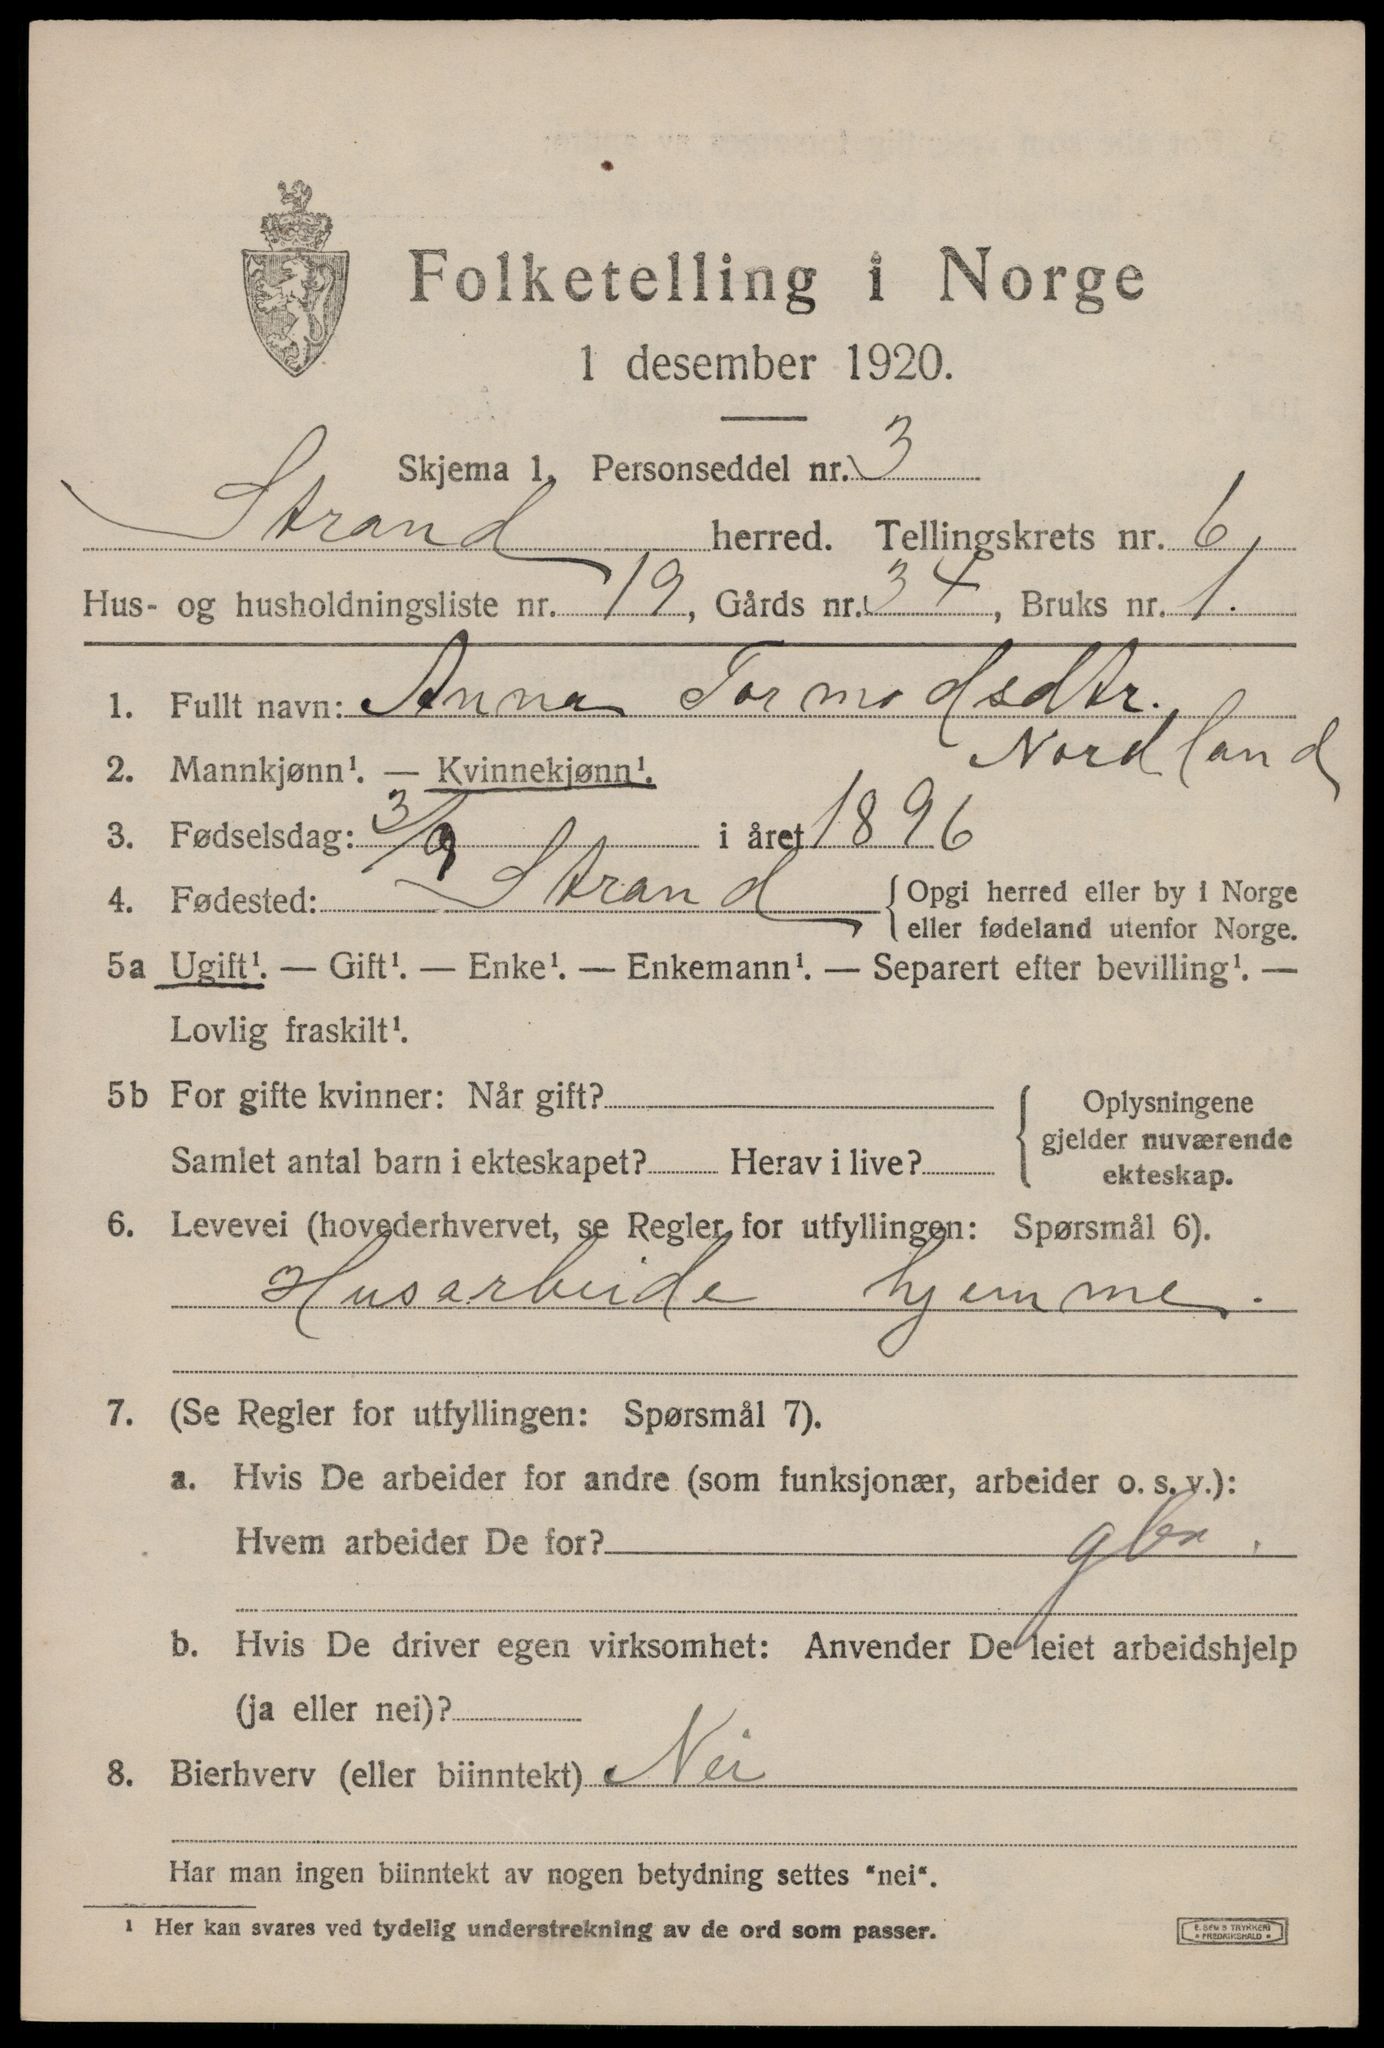 Folketelling i Norge
1 desember 1920.
Skjema 1. Personseddel nr. 3
Strand herred. Tellingskrets nr. 6.
Hus- og husholdningsliste nr. 19, Gårds nr. 34, Bruks nr. 1.
1. Fullt navn: Anna Tormodsdtr.
Nordland
2. Mannkjønn¹. — Kvinnekjønn¹.
3. Fødselsdag: 3/9 i året 1896
4. Fødested: Strand { Opgi herred eller by i Norge
eller fødeland utenfor Norge.
5a Ugift¹. — Gift¹. — Enke¹. — Enkemann¹. — Separert efter bevilling¹. —
Lovlig fraskilt¹.
5b For gifte kvinner: Når gift?
Samlet antal barn i ekteskapet? Herav i live?
{ Oplysningene
gjelder nuværende
ekteskap.
6. Levevei (hovederhvervet, se Regler for utfyllingen: Spørsmål 6).
Husarbeide hjemme.
7. (Se Regler for utfyllingen: Spørsmål 7).
a. Hvis De arbeider for andre (som funksjonær, arbeider o. s. v.):
Hvem arbeider De for? gbr.
b. Hvis De driver egen virksomhet: Anvender De leiet arbeidshjelp
(ja eller nei)?
8. Bierhverv (eller biinntekt) Nei
Har man ingen biinntekt av nogen betydning settes "nei".
¹ Her kan svares ved tydelig understrekning av de ord som passer.
E. SEM'S TRYKKERI
* FREDRIKSHALD *